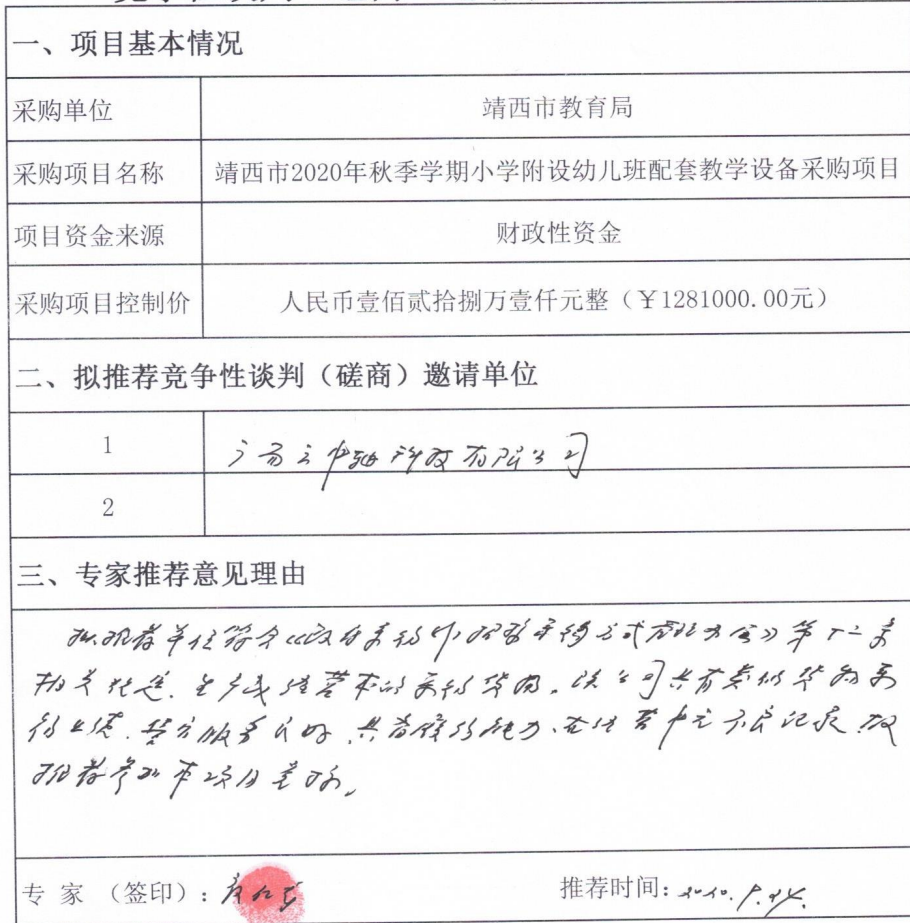 一、项目基本情况
采购单位 靖西市教育局
采购项目名称 靖西市2020年秋季学期小学附设幼儿班配套教学设备采购项目
项目资金来源 财政性资金
采购项目控制价 人民币壹佰贰拾捌万壹仟元整（￥1281000.00元）
二、拟推荐竞争性谈判（磋商）邀请单位
1 科技有限公司
2
三、专家推荐意见理由
拟推荐单位符合《政府采购非招标采购方式管理办法》第十二条
相关规定.生产或经营本次采购货物。该公司具有类似货物采
购业绩.售后服务良好.具有履约能力.在经营中无不良记录.故
推荐参加本项目
专 家 （签印）:
推荐时间: 2020.9.24.